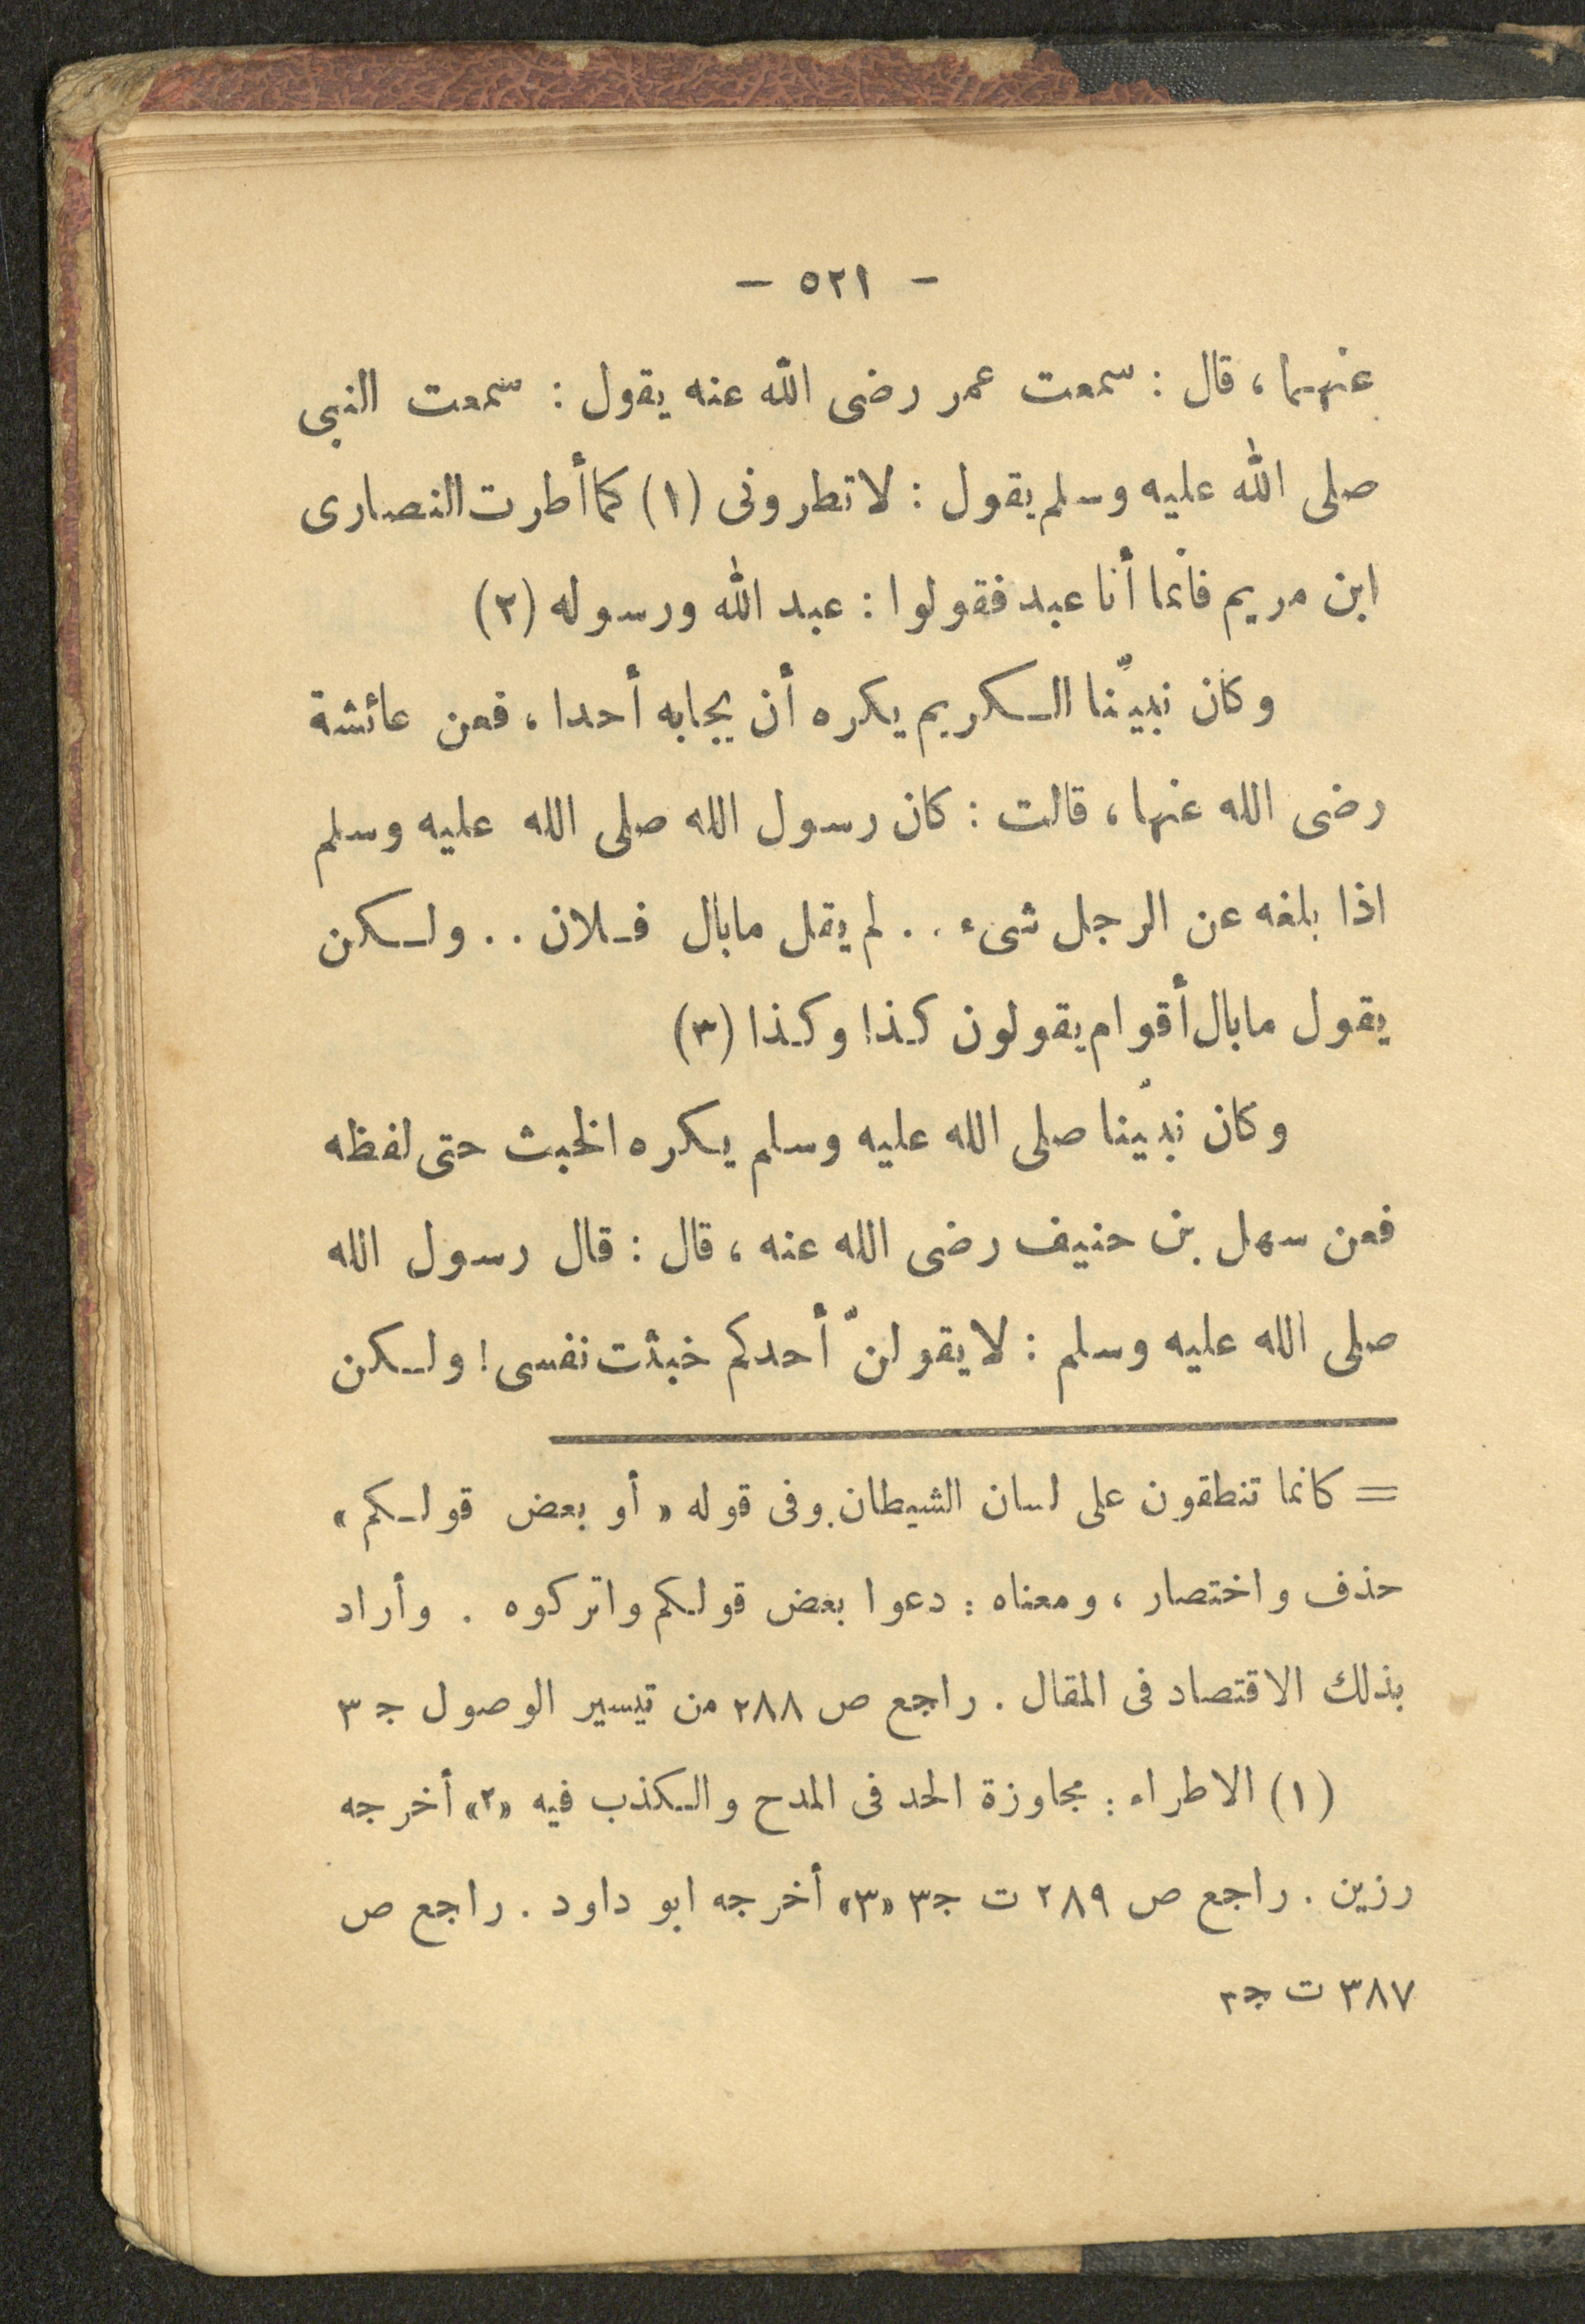 - ٥٢١ -
عنهما ، قال : سمعت عمر رضى الله عنه يقول : سمعت النبى
صلى الله عليه وسلم يقول : لا تطرونى (١) كما أطرت النصارى
ابن مريم فانما أنا عبد فقولوا : عبد الله ورسوله (٢)
وكان نبيّنا الكريم يكره أن يجابه أحدا ، فعن عائشة
رضى الله عنها ، قالت : كان رسول الله صلى الله عليه وسلم
اذا بلغه عن الرجل شىء .. لم يقل مابال فلان .. ولكن
يقول مابال أقوام يقولون كذا وكذا (٣)
وكان نبيّنا صلى الله عليه وسلم يكره الخبث حتى لفظه
فعن سهل بن حنيف رضى الله عنه ، قال : قال رسول الله
صلى الله عليه وسلم : لا يقولنّ أحدكم خبثت نفسى ! ولكن
= كانما تنطقون على لسان الشيطان. وفى قوله « أو بعض قولكم »
حذف واختصار ، ومعناه : دعوا بعض قولكم واتركوه . وأراد
بذلك الاقتصاد فى المقال . راجع ص ٢٨٨ من تيسير الوصول جـ ٣
(١) الاطراء : مجاوزة الحد فى المدح والكذب فيه «٢» أخرجه
رزين . راجع ص ٢٨٩ ت جـ٣ «٣» أخرجه ابو داود . راجع ص
٣٨٧ ت جـ٢